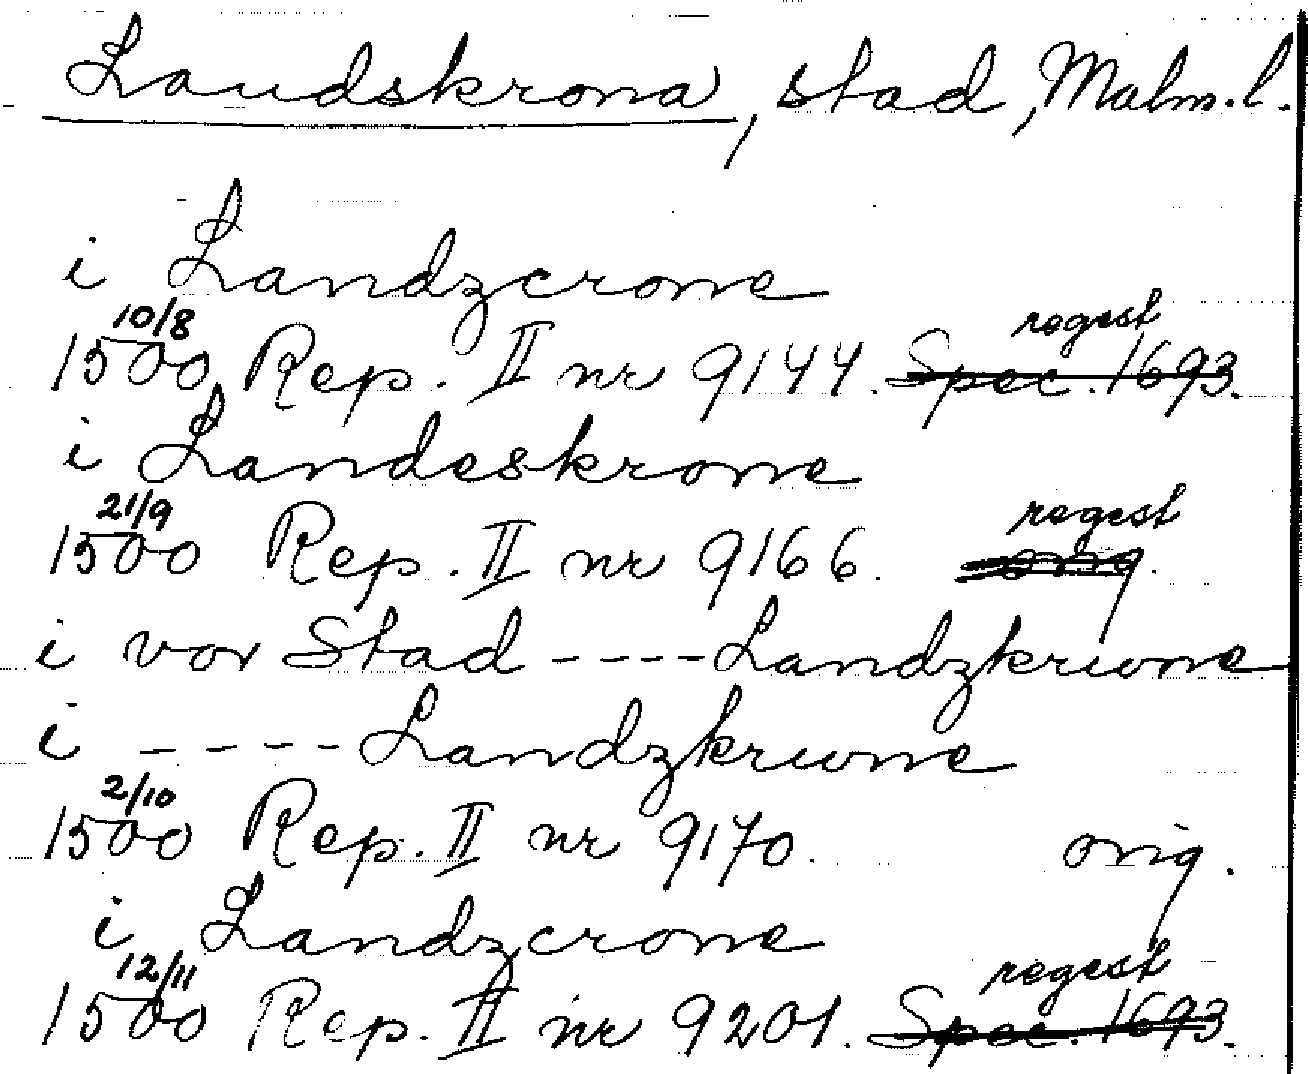 Landskrona, stad, Malm.l.
i Landzcrone
10/8 regest
1500 Rep. II nr 9144. Spec. 1693.
i Landeskrone
21/9 regest
1500 Rep. II nr 9166. orig.
i vor Stad ---- Landzkrwne
i ----- Landzkrwne
2/10
1500 Rep. II nr 9170. orig.
i Landzcrone
12/11 regest
1500 Rep. II nr 9201. Spec. 1693.